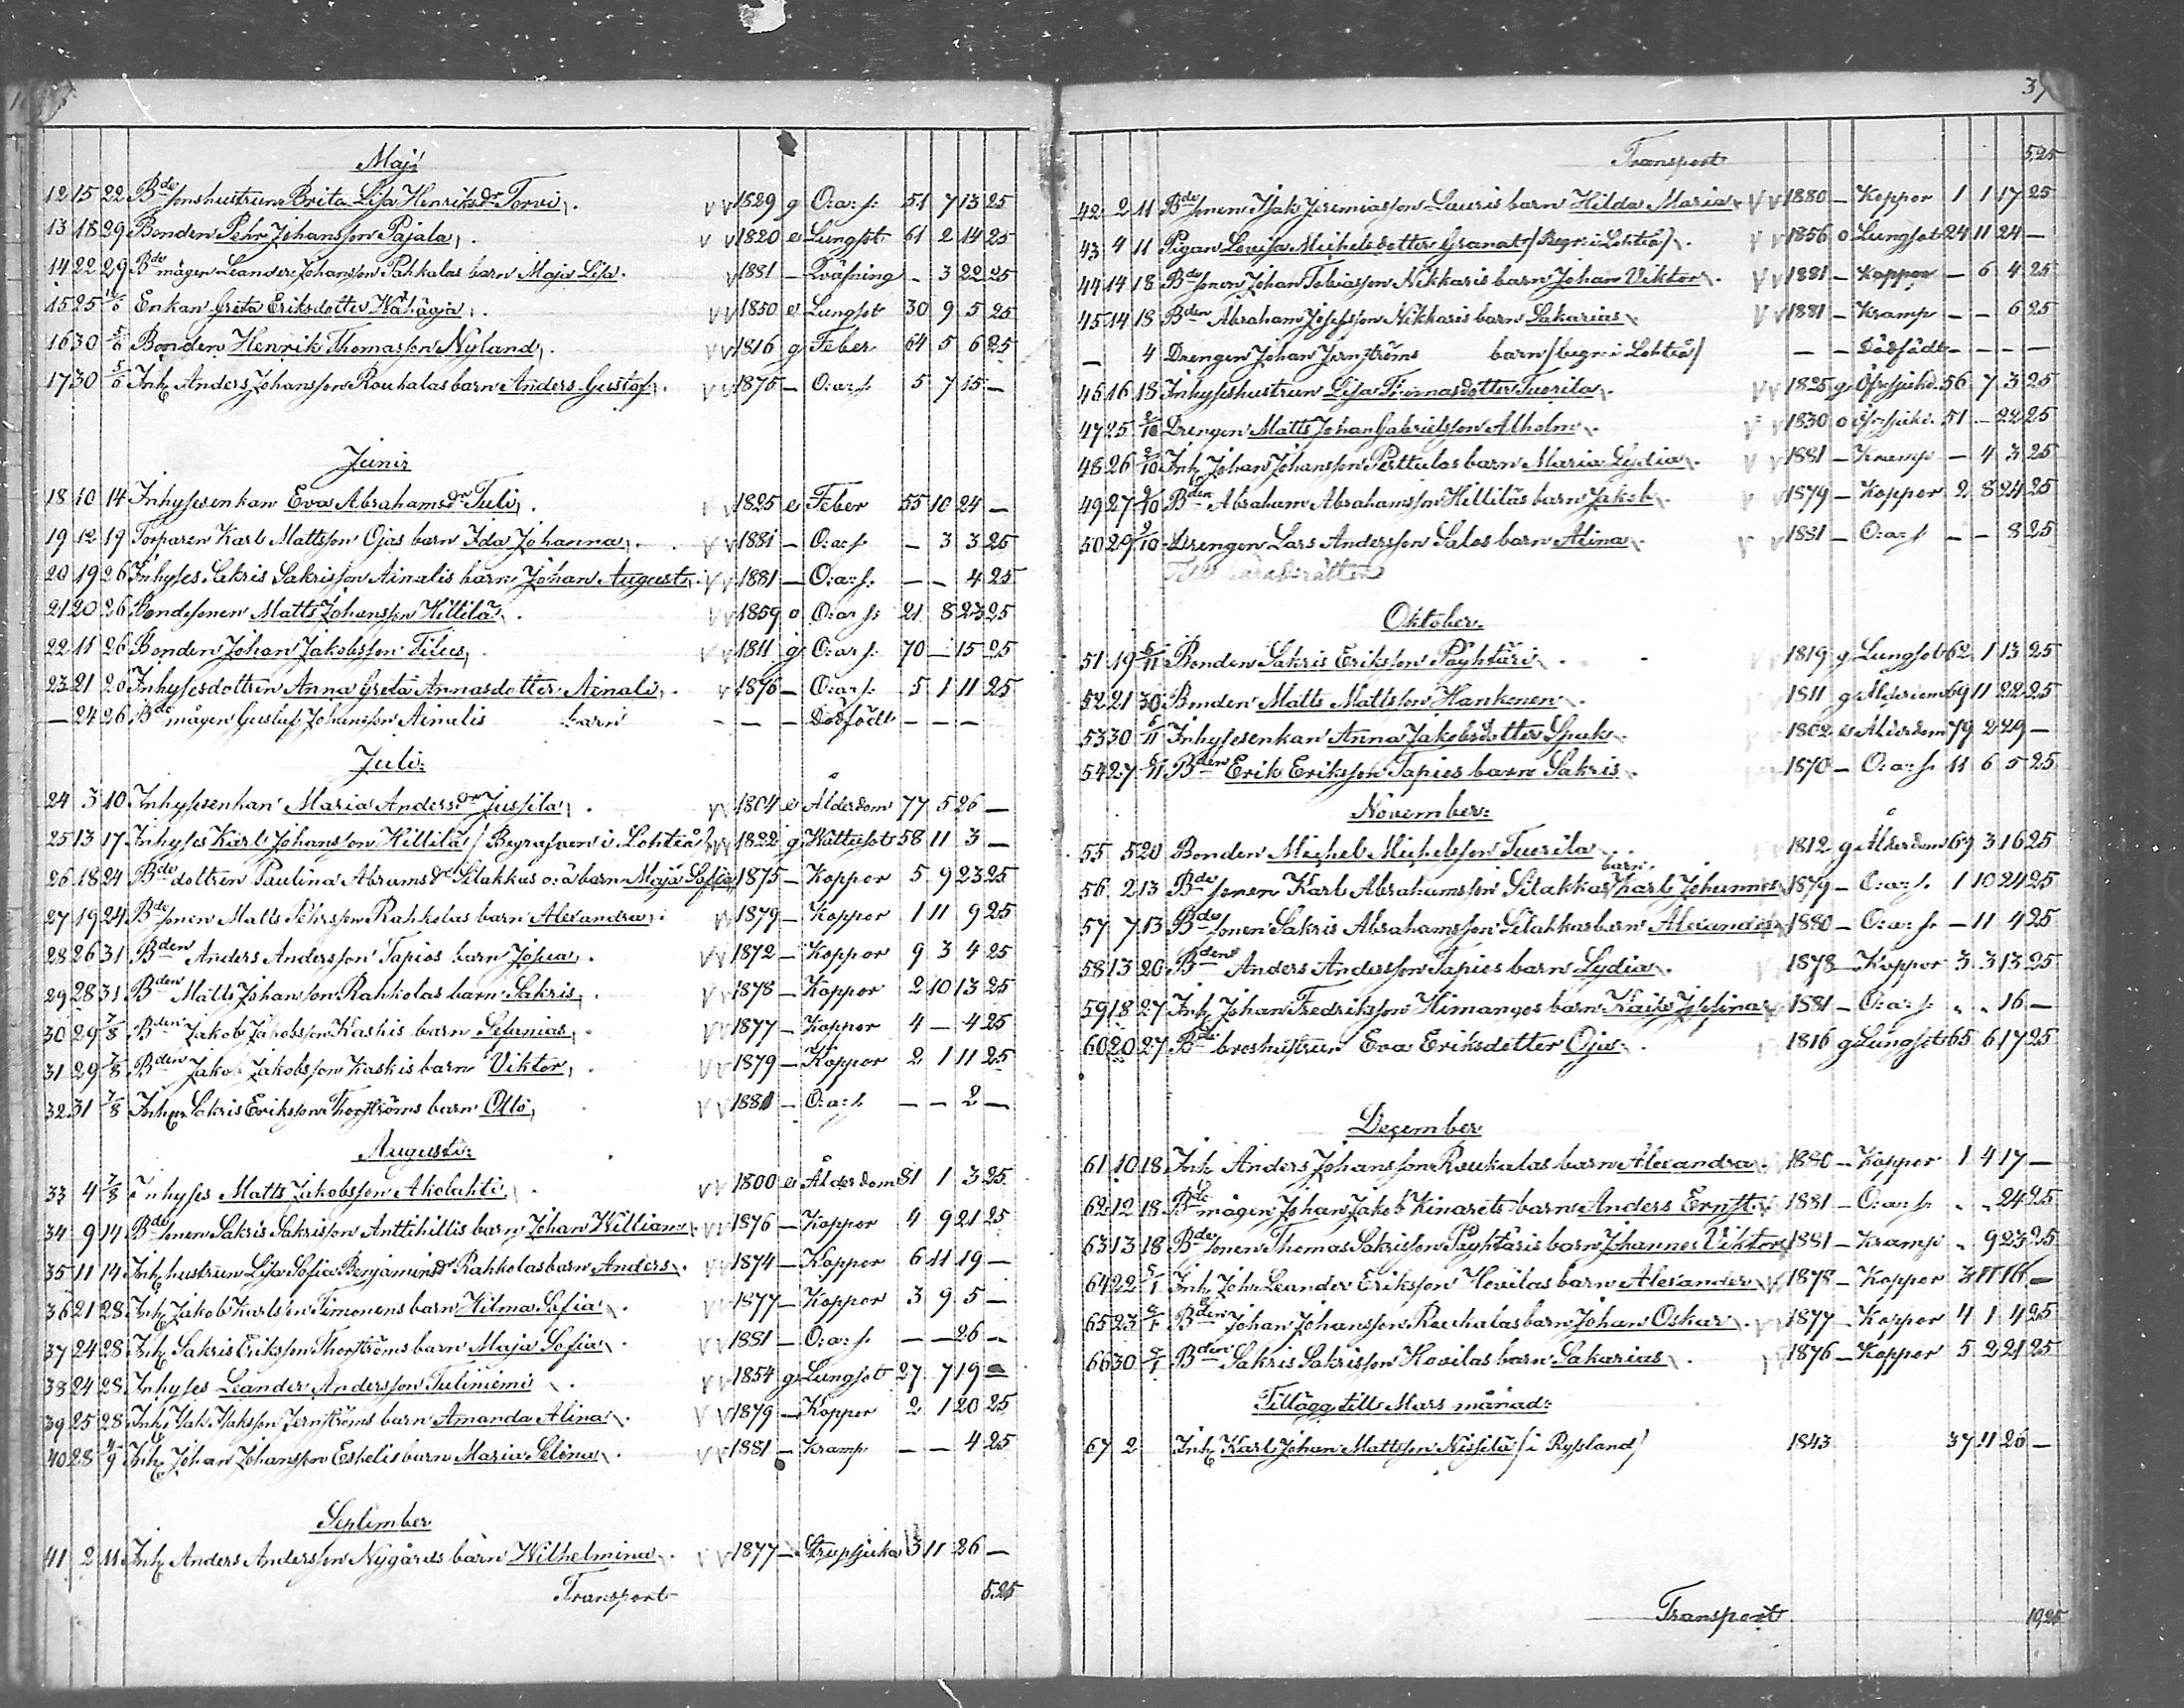 Maji
12 15 22 Bde sonshustrun Brita Lisa Henriksdr Torvi. 1829 g O:a: s: 51 7 13 25
13 18 29 Bonden Pehr Johansson Pajala. 1820 e Lungsot 61 2 14 25
14 22 29 Bde mågen Leander Johansson Pahkalas barn Maja Lisa. 1881 – Qväfning – 3 22 25
15 25 1/6 Enkan Greta Eriksdotter 1850 e Lungsot 30 9 5 25
16 30 5/6 Bonden Henrik Thomasson Nyland. 1816 g Feber 64 5 6 25
17 30 5/6 Inh. Anders Johansson Roukalas barn Anders Gustaf. 1875 – O:a: s: 5 7 15 –
Juni:
18 10 14 Inhysesenkan Eva Abrahamsdr Tuli. 1825 e Feber 55 10 24 –
19 12 19 Torparen Karl Mattsson Ojas barn Ida Johanna. 1881 – O:a: s: – 3 3 25
20 19 26 Inhyses Sakris Sakrisson Ainalis barn Johan August. 1881 – O:a: s: – – 4 25
21 20 26 Bondesonen Matts Johansson Hillilä. 1859 o O:a: s: 21 8 23 25
22 11 26 Bonden Johan Jakobsson Filus. 1811 g O:a: s: 70 – 15 25
23 21 26 Inhysesdottren Anna Greta Annasdotter Ainali. 1876 – O:a: s: 5 1 11 25
– 24 26 Bde mågen Gustaf Johansson Ainalis barn – – – Dödfödt – – –
Juli:
24 3 10 Inhysesenkan Maria Andersdr Jussila. 1804 e Ålderdom 77 5 26 –
25 13 17 Inhyses Karl Johansson Hillilä / Begrafven i Lohteå / 1822 g Wattusot 58 11 3 –
26 18 24 Bde dottren Paulina Abramsdr Silakkas o: ä barn Maja Sofia 1875 – Koppor 5 9 23 25
27 19 24 Bde sonen Matts Pehrsson Rahkolas barn Alexandra. 1879 – Koppor 1 11 9 25
28 26 31 Bden Anders Andersson Tapios barn Josua. 1872 – Koppor 9 3 4 25
29 28 31 Bden Matts Johansson Rahkolas barn Sakris. 1878 – Koppor 2 10 13 25
30 29 7/8 Bden Jakob Jakobsson Kaskis barn Sefanias. 1877 – Koppor 4 – 4 25
31 29 7/8 Bden Jakob Jakobsson Kaskis barn Viktor. 1879 – Koppor 2 1 11 25
32 31 7/8 Inh. Sakris Eriksson Thorströms barn Otto. 1881 – O:a: s: – – 2 –
Augusti:
33 4 7/8 Inhyses Matts Jakobsson Akolahti. 1800 e Ålderdom 81 1 3 25
34 9 14 Bde sonen Sakris Sakrisson Anttihillis barn Johan William. 1876 – Koppor 4 9 21 25
35 11 14 Inh. hustrun Lisa Sofia Benjaminsdr Rahkolas barn Anders. 1874 – Koppor 6 11 19 –
36 21 28 Inh. Jakob Karlsson Timonens barn Hilma Sofia. 1877 – Koppor 3 9 5 –
37 24 28 Inh. Sakris Eriksson Thorströms barn Maja Sofia. 1881 – O:a: s: – – 26 –
38 24 28 Inhyses Leander Andersson Tuliniemi. 1854 g Lungsot 27 7 19 –
39 25 28 Inh. Isak Isaksson Jernströms barn Amanda Alina. 1879 – Koppor 2 1 20 25
40 28 4/9 Inh. Johan Johansson Eskelis barn Maria Selina. 1881 – Kramp – – 4 25
September
41 2 11 Inh. Anders Andersson Nygårds barn Wilhelmina. 1877 – Strupsjuka 3 11 26 –
Transport 5.25
37
Transport 5.25
42 2 11 Bde sonen Isak Jeremiasson Lauris barn Hilda Maria. 1880 – Koppor 1 1 17 25
43 4 11 Pigan Lovisa Michelsdotter Granat / Begr: i Lohteå /. 1856 o Lungsot 24 11 24 –
44 14 18 Bde sonen Johan Tobiasson Nikkaris barn Johan Viktor. 1881 – Koppor – 6 4 25
45 14 18 Bden Abraham Josefsson Nikkaris barn Sakarias. 1881 – Kramp – – 6 25
– 4 Drengen Johan Jernströms barn / begr: i Lohteå / – – Dödfödt – – – –
45 16 18 Inhyseshustrun Lisa Thomasdotter Tuorila. 1825 g 56 7 3 25
47 25 2/10 Drengen Matts Johan Gabrielsson Alholm. 1830 o 51 – 22 25
48 26 2/10 Inh. Johan Johansson Perttulas barn Maria Lydia. 1881 – Kramp – 4 3 25
49 27 9/10 Bden Abraham Abrahamsson Hilliläs barn Jakob. 1879 – Koppor 2 8 24 25
50 29 9/10 Drengen Lars Andersson Salos barn Alina. 1881 – O:a: s: – – 8 25
Till häradsrätten
Oktober.
51 19 6/11 Bonden Sakris Eriksson Päyhtäri. 1819 g Lungsot 62 1 13 25
52 21 30 Bonden Matts Mattsson Hankonen. 1811 g Ålderdom 69 11 22 25
53 30 6/11 Inhysesenkan Anna Jakobsdotter Spak. 1802 e Ålderdom 79 2 29 –
54 27 6/11 Bden Erik Eriksson Tapios barn Sakris. 1870 – O:a: s: 11 6 5 25
November:
55 5 20 Bonden Michel Michelsson Tuorila. 1812 g Ålderdom 69 3 16 25
56 2 13 Bde sonen Karl Abrahamsson Silakkas barn Karl Johannes 1879 – O:a: s. 1 10 24 25
57 7 13 Bde sonen Sakris Abrahamsson Silakkas barn Alexander 1880 – O:a: s. – 11 4 25
58 13 20 Bden Anders Andersson Tapios barn Lydia. 1878 – Koppor 3 3 13 25
59 18 27 Inh. Johan Fredriksson Himangos barn Kaisa Josefina 1881 – O:a: s: „ „ 16 –
60 20 27 Bde broshustrun Eva Eriksdotter Oja. 1816 g Lungsot 65 6 17 25
December
61 10 18 Inh. Anders Johansson Roukalas barn Alexandra. 1880 – Koppor 1 4 17 –
62 12 18 Bde mågen Johan Jakob Kinarets barn Anders Ernst. 1881 – O:a: s: „ „ 24 25
63 13 18 Bde sonen Thomas Sakrisson Päyhtäris barn Johannes Viktor 1881 – Kramp „ 9 23 25
64 22 5/1 Inh. Joh. Leander Eriksson Hovilas barn Alexander. 1878 – Koppor 3 11 –
65 23 Bden Johan Johansson Roukalas barn Johan Oskar. 1877 – Koppor 4 1 4 25
66 30 Bden Sakris Sakrisson Hovilas barn Sakarias. 1876 – Koppor 5 2 21 25
Tillägg till Mars månad:
67 2 Inh. Karl Johan Mattsson Nissilä / i Ryssland / 1843 37 11 26 –
Transport 10,25